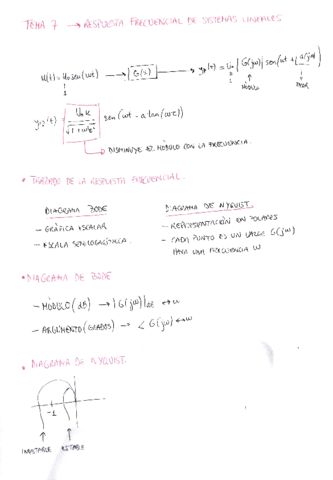 TEMA 7 → RESPUESTA FRECUENCIAL DE SISTEMAS LINEALES
u(t) = U₀ sen(ωt) → G(s) → y_p(t) = U₀ |G(jω)| sen(ωt + ∠G(jω))
MÓDULO FASE
y_p(t) = U₀K / √(1+ω²τ²) sen(ωt - atan(ωτ))
DISMINUYE EL MÓDULO CON LA FRECUENCIA.
* TRAZADO DE LA RESPUESTA FRECUENCIAL.
DIAGRAMA BODE
- GRÁFICA ESCALAR
- ESCALA SEMILOGARÍTMICA.
DIAGRAMA DE NYQUIST.
- REPRESENTACIÓN EN POLARES
- CADA PUNTO ES UN VALOR G(jω)
PARA UNA FRECUENCIA ω
* DIAGRAMA DE BODE
- MÓDULO (dB) → |G(jω)|dB ↔ ω
- ARGUMENTO (GRADOS) → ∠G(jω) ↔ ω
* DIAGRAMA DE NYQUIST.
-1
INESTABLE ESTABLE